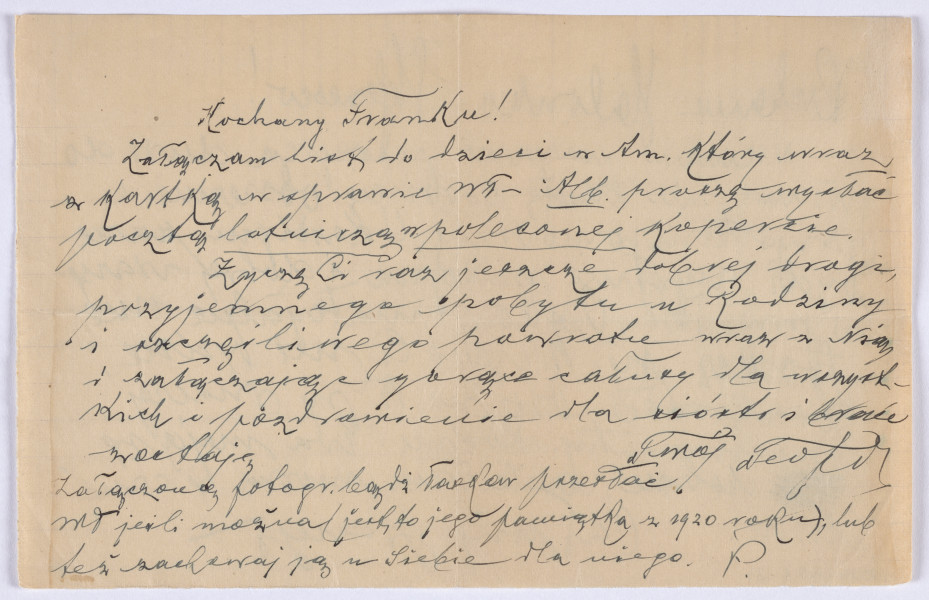 Kochany Franku!
Załączam list do dzieci w Am. który wraz
z kartką w sprawie Wł– Alb. proszę wysłać
pocztą lotniczą w poleconej kopercie.
Życzę Ci raz jeszcze dobrej drogi,
przyjemnego pobytu u Rodziny
i szczęśliwego powrotu wraz z Nią
i załączając gorące całusy dla wszyst-
kich i pozdrowienie dla sióstr i braci
zostaję Twój
Załączoną fotogr. bądź łaskaw przesłać
Wł jeśli można (jest to jego pamiątka z 1920 roku), lub
też zachowaj ją u Siebie dla niego.